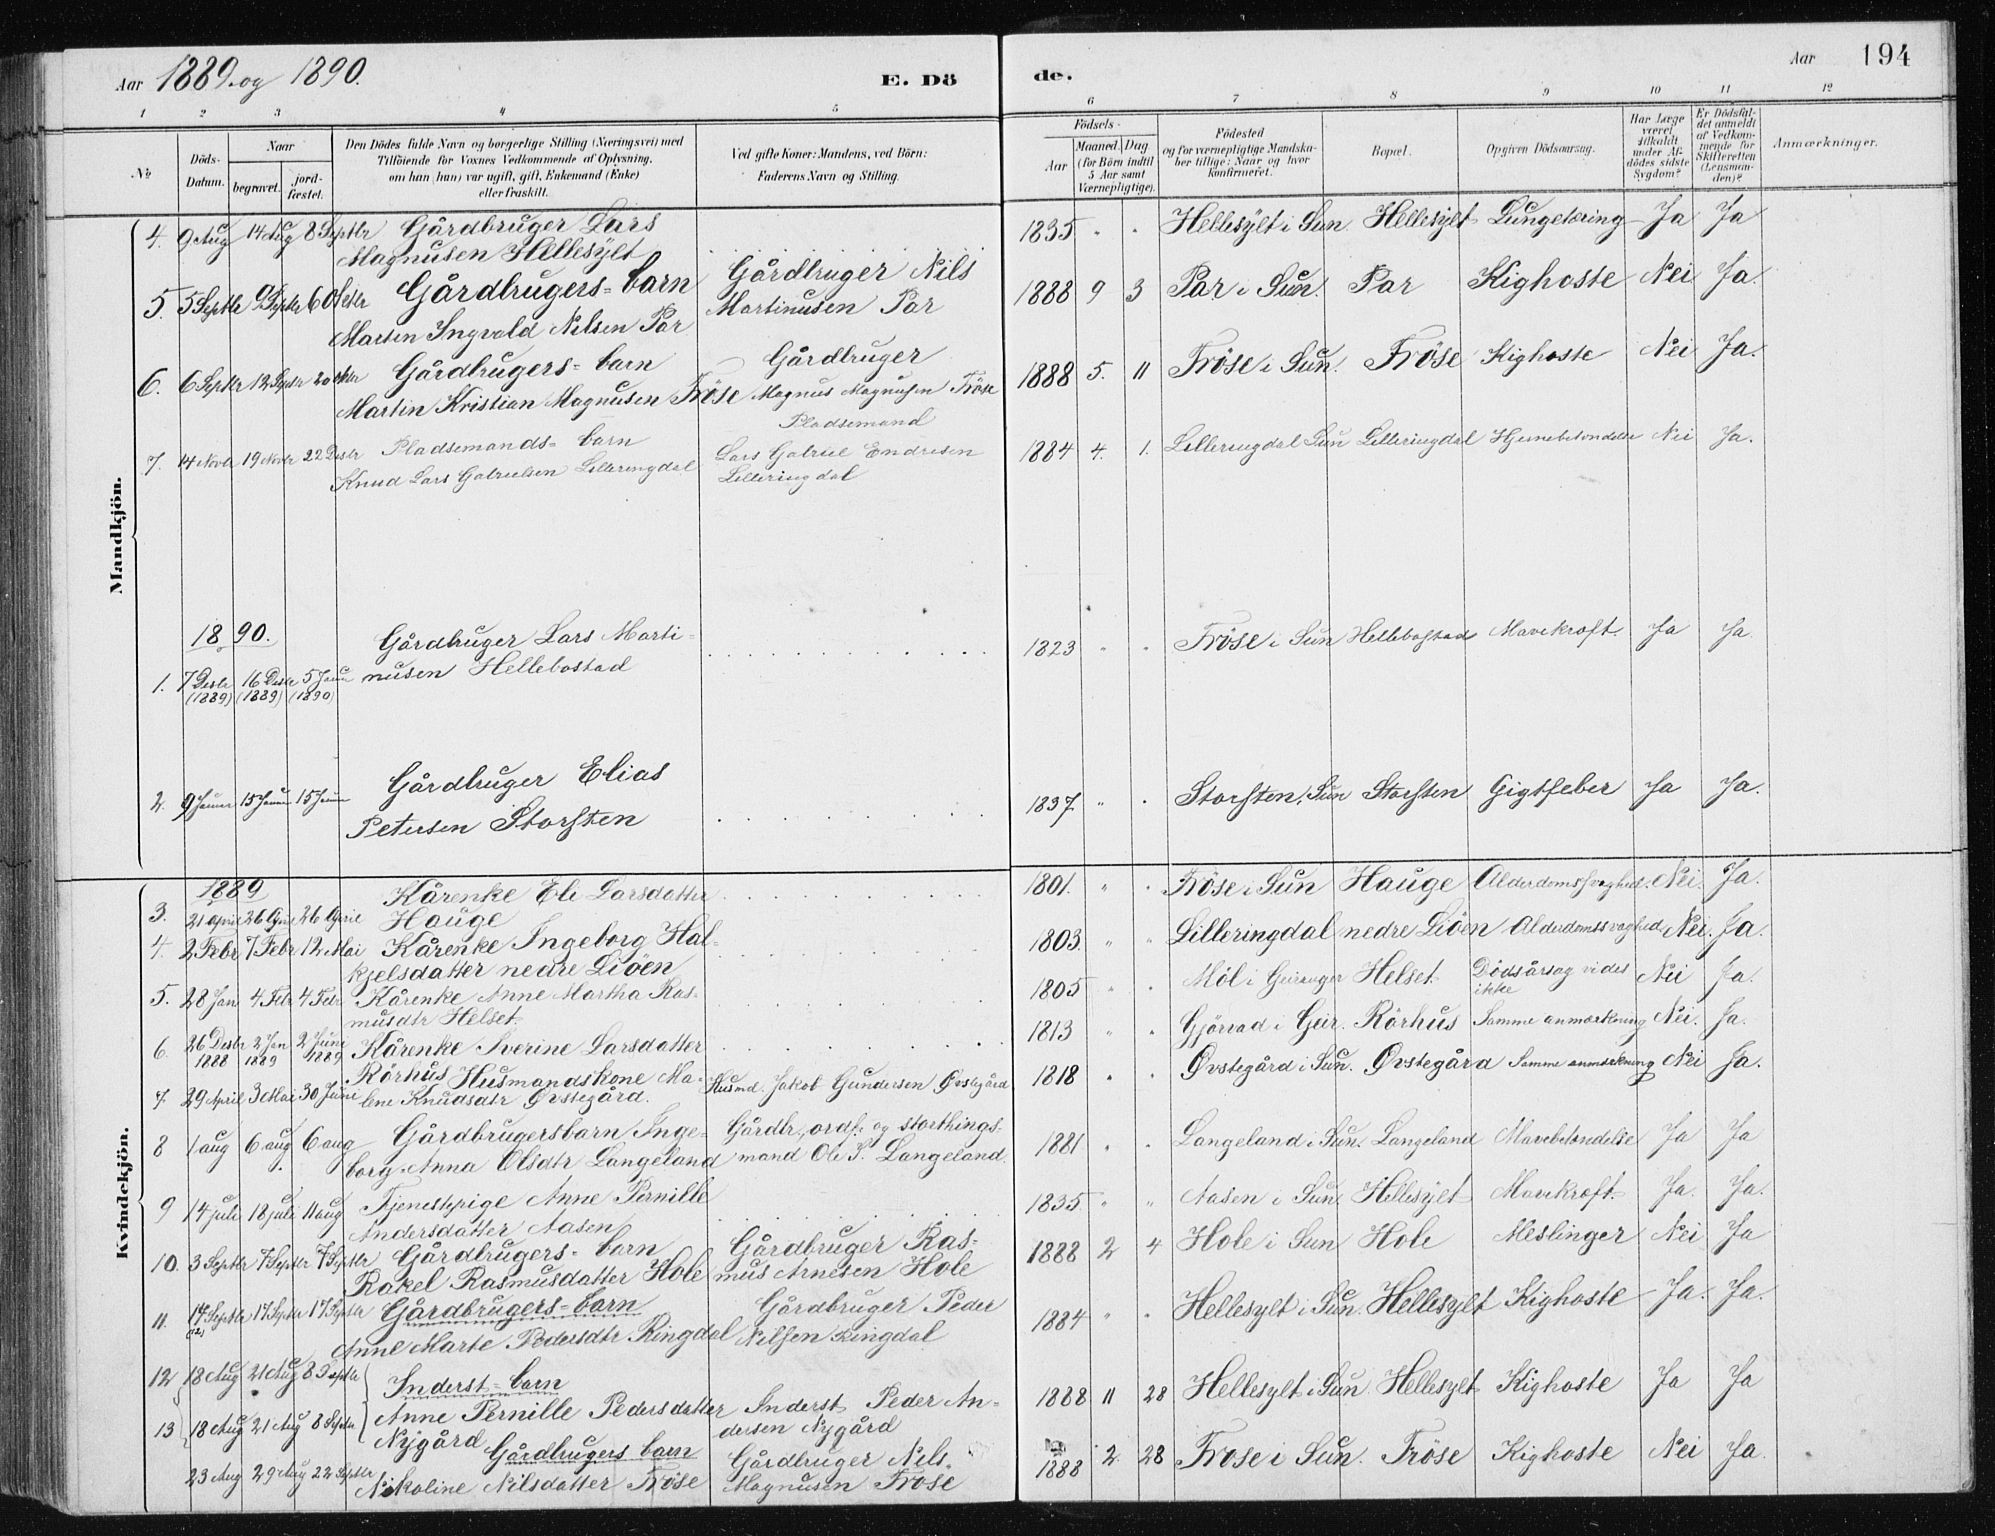 Aar 1889 og 1890.
E. Dö
de.
Aar 194
1 2 3 4 5
6 7 8 9 10 11 12
№
Döds-
Datum.
Naar
begravet.
jord-
fæstet.
Den Dödes fulde Navn og borgerlige Stilling (Næringsvei) med
Tilföiende for Voxnes Vedkommende af Oplysning,
om han (hun) var ugift, gift, Enkemand (Enke)
eller fraskilt.
Ved gifte Koner: Mandens, ved Börn:
Faderens Navn og Stilling.
Födsels-
Aar
Maaned. Dag
(for Börn indtil
5 Aar samt
Værnepligtige).
Födested
og for værnepligtige Mandska-
ber tillige: Naar og hvor
konfirmeret.
Bopæl.
Opgiven Dödsaarsag.
Har Læge
været
tilkaldt
under Af-
dödes sidste
Sygdom?
Er Dödsfal-
det anmeldt
af Vedkom-
mende for
Skifteretten
(Lensman-
den)?
Anmærkninger.
Mandkjön.
4. 9 Aug 14 Aug 8 Septbr Gårdbruger Lars 1835 " " Hellesylt i Sun. Hellesylt Lungetæring Ja Ja
Magnusen Hellesylt
5. 5 Septbr 9 Septbr 6 Oktbr Gårdbrugers-barn Gårdbruger Nils 1888 9 3 Rar i Sun. Rar Kighoste Nei Ja.
Martin Ingvald Nilsen Rar Martinusen Rar
6. 6 Septbr 12 Septbr 20 Oktbr Gårdbrugers-barn Gårdbruger 1888 5. 11 Tröse i Sun. Tröse Kighoste Nei Ja.
Martin Kristian Magnusen Tröse Magnus Magnusen Tröse
Pladsemand
7. 14 Novbr 19 Novbr 22 Desbr Pladsemands-barn Lars Gabriel Endresen 1884 4. 1. Lilleringdal Sun Lilleringdal Hjernebetændelse Nei Ja.
Knud Lars Gabrielsen Lilleringdal Lilleringdal
1890.
Gårdbruger Lars Marti- 1823 " " Tröse i Sun Hellebostad Mavekræft. Ja Ja.
1. 7 Desbr 16 Desbr 5 Janu nusen Hellebostad
(1889) (1889) (1890)
Gårdbruger Elias
2. 9 Januar 15 Januar 15 Januar Petersen Storsten 1837. " . Storsten, Sun Storsten Gigtfeber Ja Ja.
Kvindekjön.
1889
3. 21 April 26 April 26 April Kårenke Eli Larsdatter 1801. " . Tröse i Sun Hauge Alderdomssvaghed. Nei. Ja.
Hauge
4. 2 Febr 7 Febr 12 Mai Kårenke Ingeborg Hal- 1803. " " Lilleringdal nedre Liöen Alderdomssvaghed Nei. Ja.
kjelsdatter nedre Liöen
5. 28 Jan 4 Febr 4 Febr Kårenke Anne Martha Ras- 1805 " . Möl i Geiranger Helset Dödsårsag vides ikke Nei Ja.
musdtr Helset.
6. 26 Desbr 2 Jan 2 Juni Kårenke Iverine Larsdatter 1813 " . Gjörvad i Geir. Rörhus Samme anmærkning Nei. Ja.
1888 1889 1889
Rörhus Husmandskone Ma- Husmd. Jakob Gundersen Øvstegård 1818 . . Øvstegård i Sun. Øvstegård Samme anmærkning Nei Ja.
7. 29 April 3 Mai 30 Juni lene Knudsdtr Øvstegård.
8 1 aug 6 aug 6 aug Gårdbrugersbarn Inge- Gårdbr., ordf. og storthings- 1881 . . Langeland i Sun. Langeland Mavebetændelse Ja Ja
borg Anna Olsdtr Langeland mand Ole P. Langeland.
9 14 juli 18 juli 11 aug Tjenestepige Anne Pernille 1835 " " Aasen i Sun. Hellesylt Mavekræft. Ja. Ja.
Andersdatter Aasen
10. 3 Septbr 7 Septbr 7 Septbr Gårdbrugers-barn Gårdbruger Ras- 1888 2 4 Hole i Sun Hole Meslinger Nei Ja
Rakel Rasmusdatter Hole mus Arnesen Hole
11. 14 Septbr 17 Septbr 17 Septbr Gårdbrugers-barn Gårdbruger Peder 1884 " . Hellesylt i Sun. Hellesylt Kighoste Ja. Ja.
(12)
Anne Marte Pedersdtr Ringdal Nilsen Ringdal
12 18 Aug 21 Aug 8 Septbr Inderst-barn 1888 11 28 Hellesylt i Sun. Hellesylt Kighoste Ja Ja
13 18 Aug 21 Aug 8 Septbr Anne Pernille Pedersdatter Inderst Peder An-
Nygård dersen Nygård
Gårdbrugers barn Gårdbruger Nils 1888 2. 28 Tröse i Sun. Tröse Kighoste Nei Ja
23 Aug 29 Aug 22 Septbr Nikoline Nilsdatter Tröse Magnusen Tröse